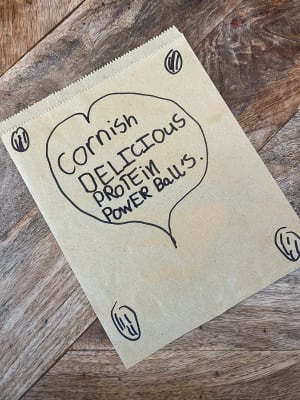 Cornish
DELICIOUS
PROTEiN
PoWER Ball's.